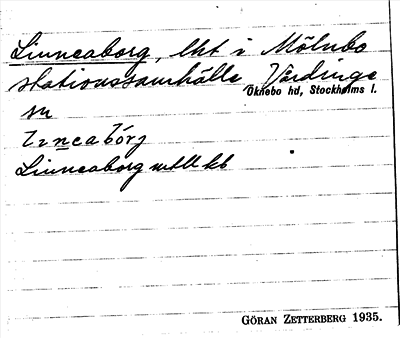 Linneaborg, lht i Mölnbo
stationssamhälle Vårdinge
Öknebo hd, Stockholms l.
sn
Linneaborg mtll kb
GÖRAN ZETTERBERG 1935.